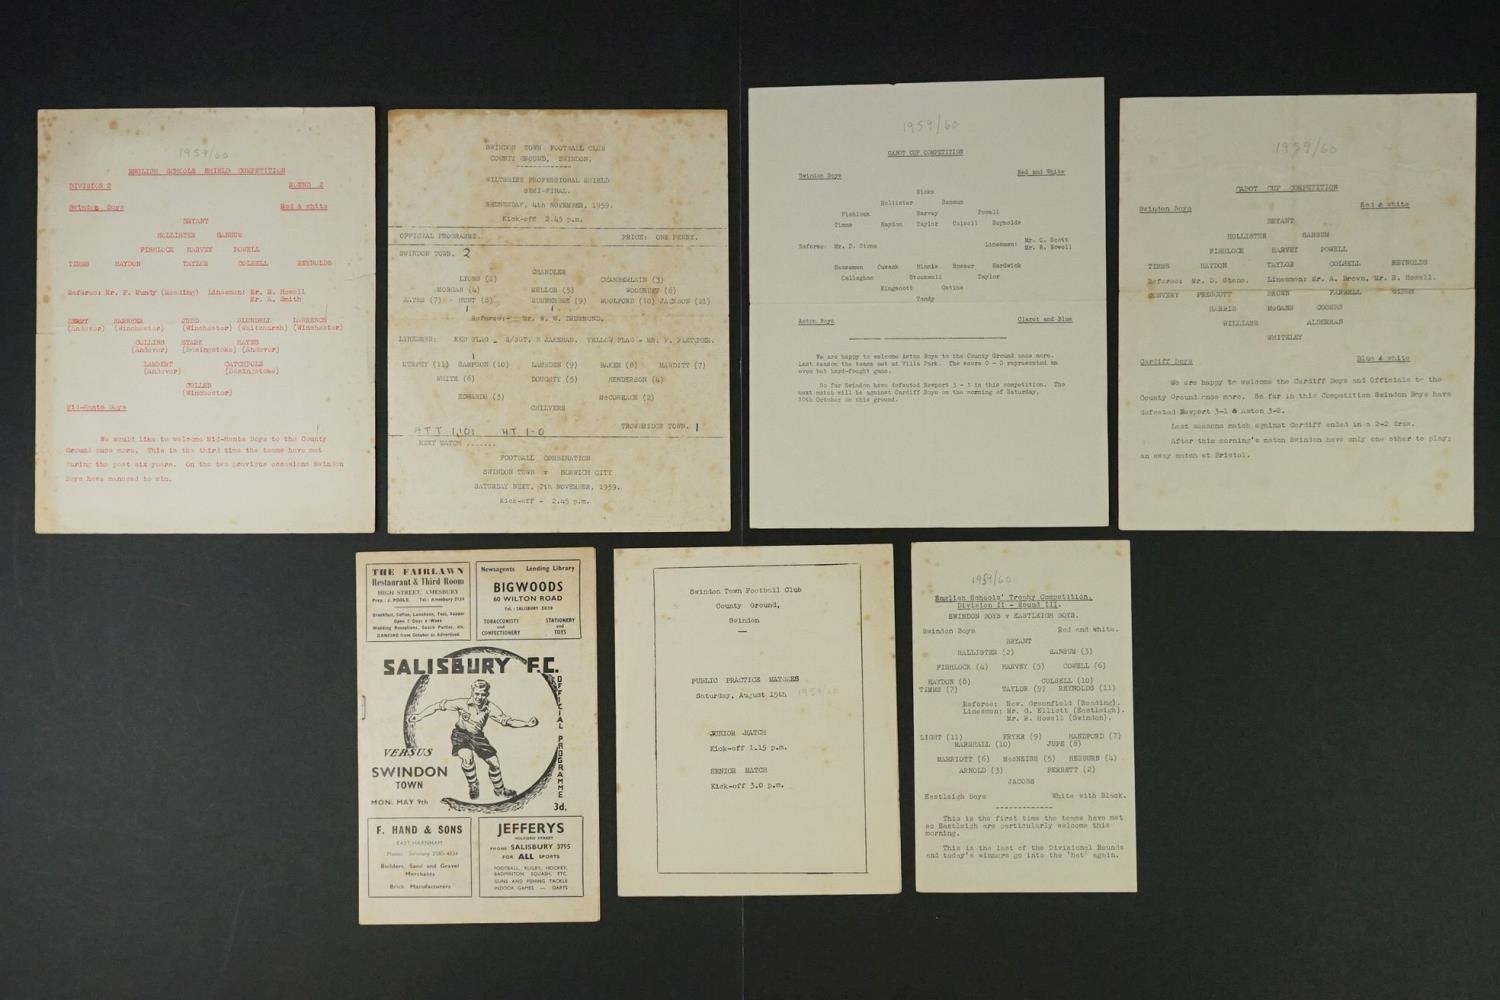 1959/60
ENGLISH SCHOOLS SHIELD COMPETITION
DIVISION 2 ROUND 2
Swindon Boys Red & white
BRYANT
HOLLISTER SANSUM
FISHLOCK HARVEY POWELL
TIMMS HAYDON TAYLOR COLSELL REYNOLDS
Referee: Mr. F. Mundy (Reading) Linesmen: Mr. R. Howell
Mr. A. Smith
LAWRENCE
(Andover) (Winchester) (Winchester) (Whitchurch) (Winchester)
COLLINS STARK HAYES
(Andover) (Basingstoke) (Andover)
LAMBERT CATCHPOLE
(Andover) (Basingstoke)
CULLEN
(Winchester)
Mid-Hants Boys
We would like to welcome Mid-Hants Boys to the County
Ground once more. This is the third time the teams have met
during the past six years. On the two previous occasions Swindon
Boys have managed to win.
SWINDON TOWN FOOTBALL CLUB
COUNTY GROUND, SWINDON.
WILTSHIRE PROFESSIONAL SHIELD
SEMI-FINAL.
WEDNESDAY, 4th NOVEMBER, 1959.
Kick-off 2.45 p.m.
OFFICIAL PROGRAMME. PRICE: ONE PENNY.
SWINDON TOWN. 2
CHANDLER
LYONS (2) CHAMBERLAIN (3)
MORGAN (4) MELLOR (5) WOODRUFF (6)
HAYES (7) HUNT (8) (9) WOOLFORD (10) JACKSON (11)
Referee:- Mr. W. W. DRUMMOND,
LINESMEN: RED FLAG - S/SGT. R JAKEMAN. YELLOW FLAG - MR. F. FLETCHER.
MURPHY (11) SAMPSON (10) LUMSDEN (9) BAKER (8) MAWDITT (7)
WHITE (6) DOUGHTY (5) HENDERSON (4)
EDWARDS (3) McCORMACK (2)
CHILVERS
HT 1-0 TROWBRIDGE TOWN. 1
NEXT MATCH .......
FOOTBALL COMBINATION
SWINDON TOWN v NORWICH CITY
SATURDAY NEXT, 7th NOVEMBER, 1959.
Kick-off - 2.45 p.m.
1959/60
CABOT CUP COMPETITION
Swindon Boys Red and White
Hicks
Hollister Sansum
Fishlock Harvey Powell
Timms Haydon Taylor Colsell Reynolds
Referee: Mr. D. Stone Linesmen: Mr. C. Scott
Mr. R. Howell
Houseman Cusack Minnis Rosser Hardwick
Callaghan Stockwell Taylor
Kingscott Gotine
Tandy
Aston Boys Claret and Blue
We are happy to welcome Aston Boys to the County Ground once more.
Last season the teams met at Villa Park. The score 0 - 0 represented an
even but hard-fought game.
So far Swindon have defeated Newport 3 - 1 in this competition. The
next match will be against Cardiff Boys on the morning of Saturday,
10th October on this ground.
1959/60
CABOT CUP COMPETITION
Swindon Boys Red & white
BRYANT
HOLLISTER SANSUM
FISHLOCK HARVEY POWELL
TIMMS HAYDON TAYLOR COLSELL REYNOLDS
Referee: Mr. D. Stone. Linesmen: Mr. A. Brown, Mr. R. Howell.
CONVERY PRESCOTT BROWN FARRELL GIBBY
HARRIS McGANN COOMBS
WILLIAMS ALDERMAN
WHITELEY
Cardiff Boys Blue & white
We are happy to welcome the Cardiff Boys and Officials to the
County Ground once more. So far in this Competition Swindon Boys have
defeated Newport 3-1 & Aston 3-2.
Last seasons match against Cardiff ended in a 2-2 draw.
After this morning's match Swindon have only one other to play;
an away match at Bristol.
THE FAIRLAWN
Restaurant & Third Room
HIGH STREET, AMESBURY
Prop.: J. POOLE. Tel.: Amesbury 2129
Breakfast, Coffee, Luncheon, Teas, Supper
Open 7 Days a Week
Wedding Receptions, Coach Parties, etc.
DANCING from October as Advertised
Newsagents Lending Library
BIGWOODS
60 WILTON ROAD
TEL.: SALISBURY 3839
TOBACCONISTS and CONFECTIONERY
STATIONERY and TOYS
SALISBURY F.C.
OFFICIAL PROGRAMME
VERSUS
SWINDON
TOWN
MON. MAY 9th
3d.
F. HAND & SONS
EAST HARNHAM
Phone: Salisbury
Builders, Sand and Gravel
Merchants
Brick Manufacturers
JEFFERYS
MILFORD STREET
PHONE SALISBURY 3795
FOR ALL SPORTS
FOOTBALL, RUGBY, HOCKEY,
BADMINTON, SQUASH, ETC.
GUNS AND FISHING TACKLE
INDOOR GAMES — DARTS
Swindon Town Football Club
County Ground,
Swindon
PUBLIC PRACTICE MATCHES
Saturday, August 15th 1959/60
JUNIOR MATCH
Kick-off 1.15 p.m.
SENIOR MATCH
Kick-off 3.0 p.m.
1959/60
English Schools' Trophy Competition.
Division II - Round III.
SWINDON BOYS v EASTLEIGH BOYS.
Swindon Boys Red and white.
BRYANT
HALLISTER (2) SANSUM (3)
FISHLOCK (4) HARVEY (5) COWELL (6)
HAYDON (8) COLSELL (10)
TIMMS (7) TAYLOR (9) REYNOLDS (11)
Referee: Rev. Greenfield (Reading).
Linesmen: Mr. G. Elliott (Eastleigh).
Mr. R. Howell (Swindon).
LIGHT (11) FRYER (9) HANDFORD (7)
MARSHALL (10) JUPE (8)
MARRIOTT (6) McNEISH (5) HEBBURN (4)
ARNOLD (3) PERRETT (2)
JACOBS
Eastleigh Boys White with Black.
This is the first time the teams have met
so Eastleigh are particularly welcome this
morning.
This is the last of the Divisional Rounds
and today's winners go into the 'hat' again.